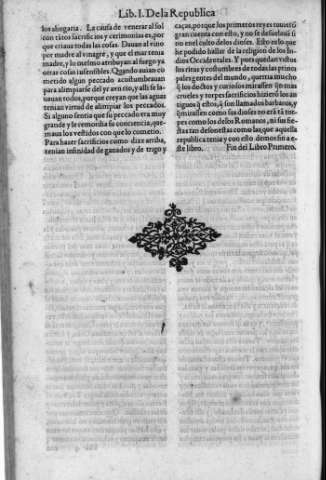 Lib. I. De la Republica
los ahogaria. La causa de venerar al sol
con tãtos sacrificios y cerimonias es, por
que criaua todas las cosas. Dauan al vino
por madre al vinagre, y que el mar tenia
madre, y lo mesmo atribuyan al fuego ya
otras cosas insensibles. Quando auian co
metido algun peccado acostumbrauan
para alimpiarse del yr a vn rio, y alli se la-
uauan todos, porque creyan que las aguas
tenian virtud de alimpiar los peccados.
Si alguno sentia que su peccado era muy
grande y le remordia su consciencia, que-
maua los vestidos con que lo cometio.
Para hazer sacrificios como dixe arriba,
tenian infinidad de ganados y de trigo y
caças, porque los primeros reyes tuuierõ
gran cuenta con esto, y no se descuidaã si
no en el culto de los dioses. Esto es lo que
he podido hallar de la religion de los In-
dios Occidentales. Y pues quedan vistos
los ritus y costumbres de todas las princi
pales gentes del mundo, querria mucho
q̃ los doctos y curiosos mirassen q̃n mas
crueles y torpes sacrificios hizierõ los an
tiguos q̃ estos, q̃ son llamados barbaros, y
q̃ mirassen como sus dioses no erã tã tor-
pes como los de los Romanos, ni sus fie-
stas tan desonestas como las que aquella
republica tenia y con esto demos fin a e-
ste libro.
Fin del Libro Primero.